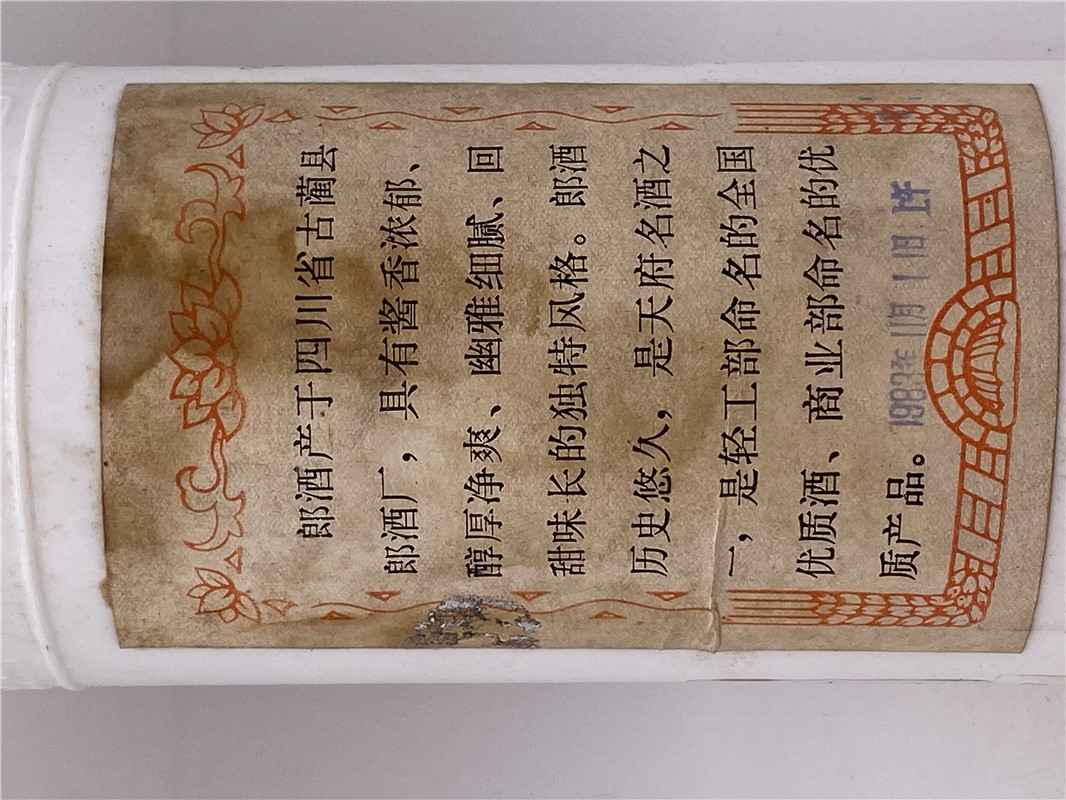 郎酒产于四川省古蔺县
郎酒厂，具有酱香浓郁、
醇厚净爽、幽雅细腻、回
甜味长的独特风格。郎酒
历史悠久，是天府名酒之
一，是轻工部命名的全国
优质酒、商业部命名的优
质产品。
1983年11月1日 上午